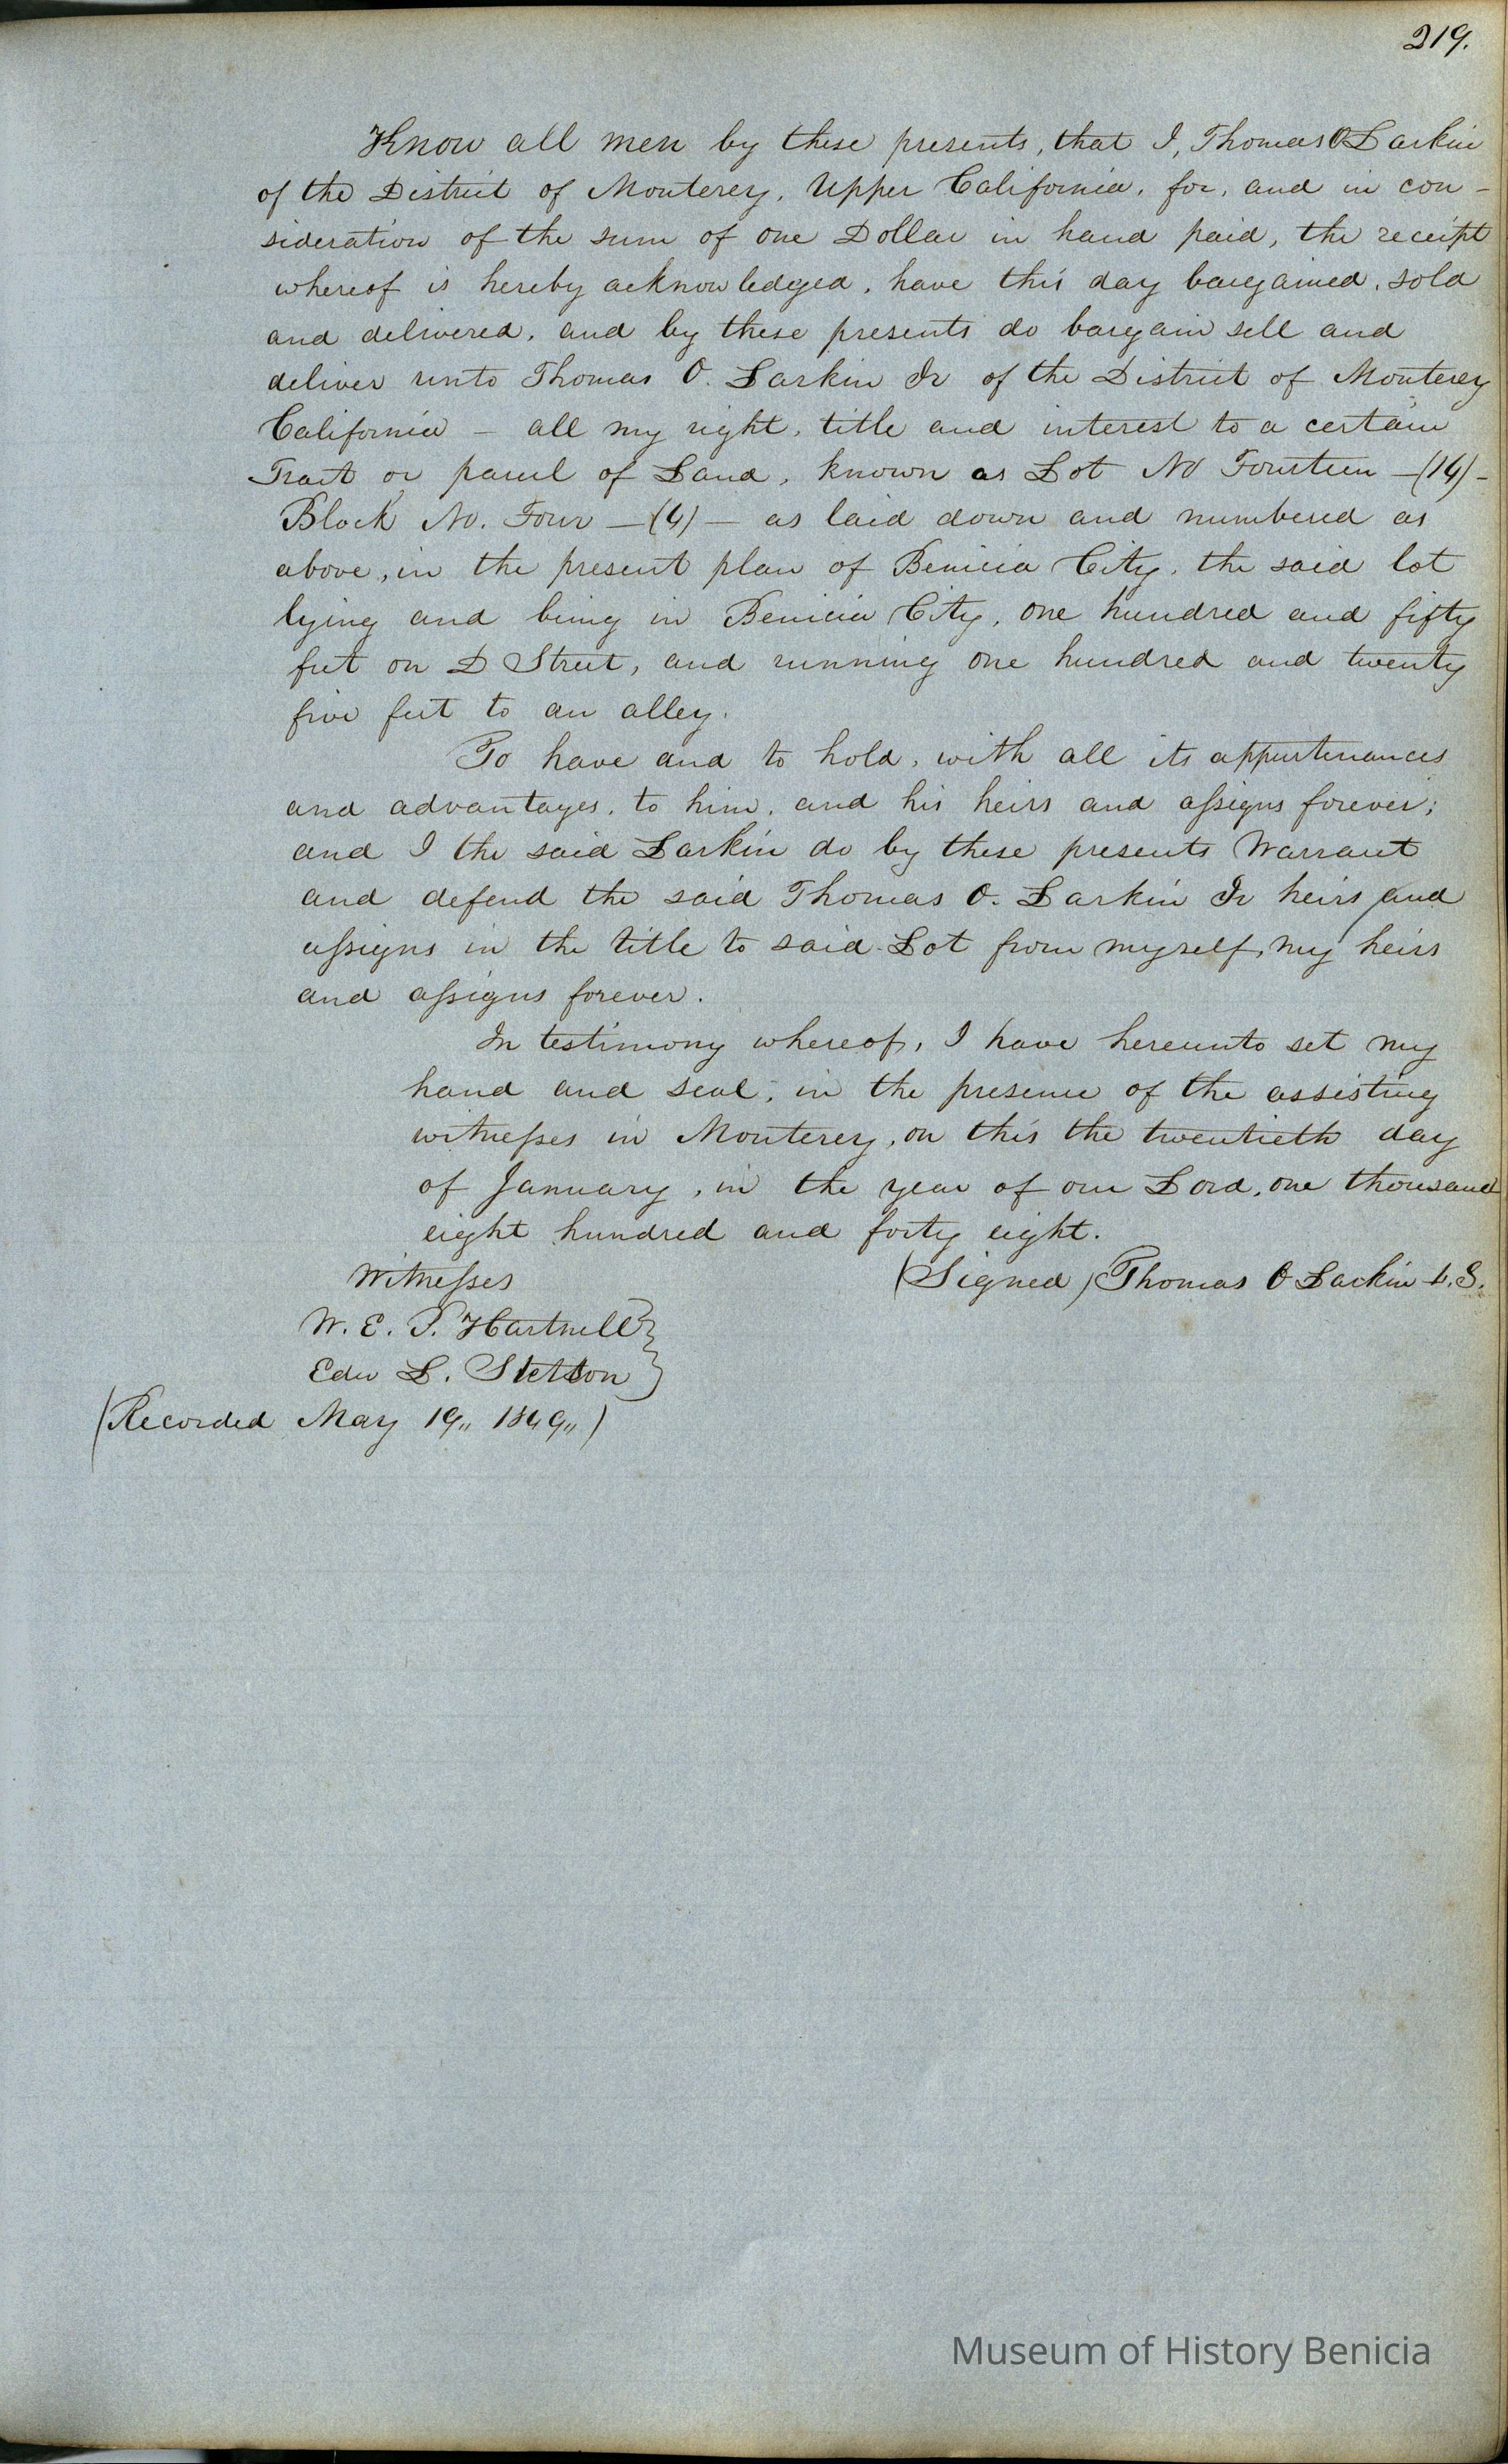 219.
Know all men by these presents, that I, Thomas O Larkin
of the District of Monterey, Upper California, for, and in con-
sideration of the sum of one Dollar in hand paid, the receipt
whereof is hereby acknowledged, have this day bargained, sold
and delivered, and by these presents do bargain sell and
deliver unto Thomas O. Larkin Jr of the District of Monterey
California - all my right, title and interest to a certain
Tract or parcel of Land, known as Lot No Fourteen -(14)-
Block No. Four -(4)- as laid down and numbered as
above, in the present plan of Benicia City, the said lot
lying and being in Benicia City, one hundred and fifty
feet on D Street, and running one hundred and twenty
five feet to an alley.
To have and to hold, with all its appurtenances
and advantages, to him, and his heirs and assigns forever;
and I the said Larkin do by these presents Warrant
and defend the said Thomas O. Larkin Jr heirs and
assigns in the title to said Lot from myself, my heirs
and assigns forever.
In testimony whereof, I have hereunto set my
hand and seal, in the presence of the assisting
witnesses in Monterey, on this the twentieth day
of January, in the year of our Lord, one thousand
eight hundred and forty eight.
Witnesses (Signed) Thomas O Larkin L.S.
W. E. P. Hartnell }
Edw L. Stetson }
(Recorded May 19,, 1849,,)
Museum of History Benicia